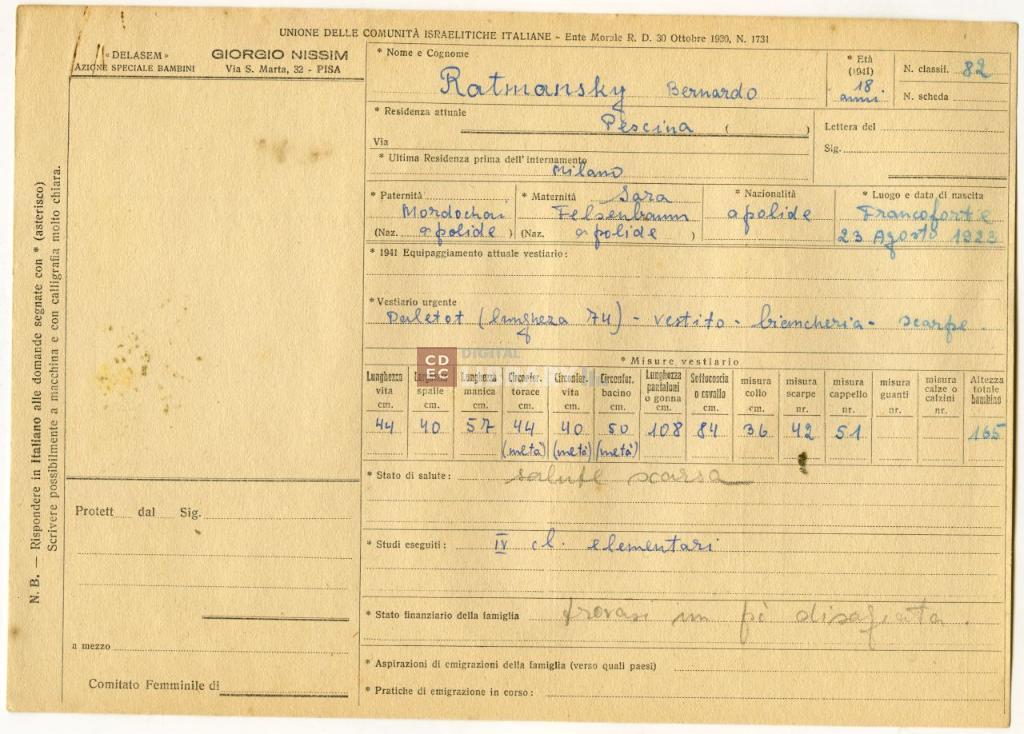 UNIONE DELLE COMUNITÀ ISRAELITICHE ITALIANE - Ente Morale R. D. 30 Ottobre 1930, N. 1731
« DELASEM »
AZIONE SPECIALE BAMBINI
GIORGIO NISSIM
Via S. Marta, 32 - PISA
N. B. — Rispondere in Italiano alle domande segnate con * (asterisco)
Scrivere possibilmente a macchina e con calligrafia molto chiara.
* Nome e Cognome
Ratmansky Bernardo
* Età
(1941)
18
anni
N. classif. 82
N. scheda
* Residenza attuale
Pescina ( )
Via
Lettera del
Sig.
* Ultima Residenza prima dell'internamento
Milano
* Paternità
Mordochai
(Naz. apolide )
* Maternità Sara
Felsenbaum
(Naz. apolide )
* Nazionalità
apolide
* Luogo e data di nascita
Francoforte
23 Agosto 1923
* 1941 Equipaggiamento attuale vestiario:
* Vestiario urgente
Paletot (lungheza 74) - vestito - biancheria - scarpe.
CDEC DIGITAL
* Misure vestiario
Lunghezza vita cm. 44
spalle cm. 40
Lunghezza manica cm. 57
Circonfer. torace cm. 44 (metà)
Circonfer. vita cm. 40 (metà)
Circonfer. bacino cm. 50 (metà)
Lunghezza pantaloni o gonna cm. 108
Sottocoscia o cavallo cm. 84
misura collo cm. 36
misura scarpe nr. 42
misura cappello nr. 51
misura guanti nr.
misura calze o calzini nr.
Altezza totale bambino 165
* Stato di salute: salute scarsa
* Studi eseguiti: IV cl. elementari
* Stato finanziario della famiglia trovasi un pò disagiata.
* Aspirazioni di emigrazioni della famiglia (verso quali paesi)
* Pratiche di emigrazione in corso:
Protett dal Sig.
a mezzo
Comitato Femminile di